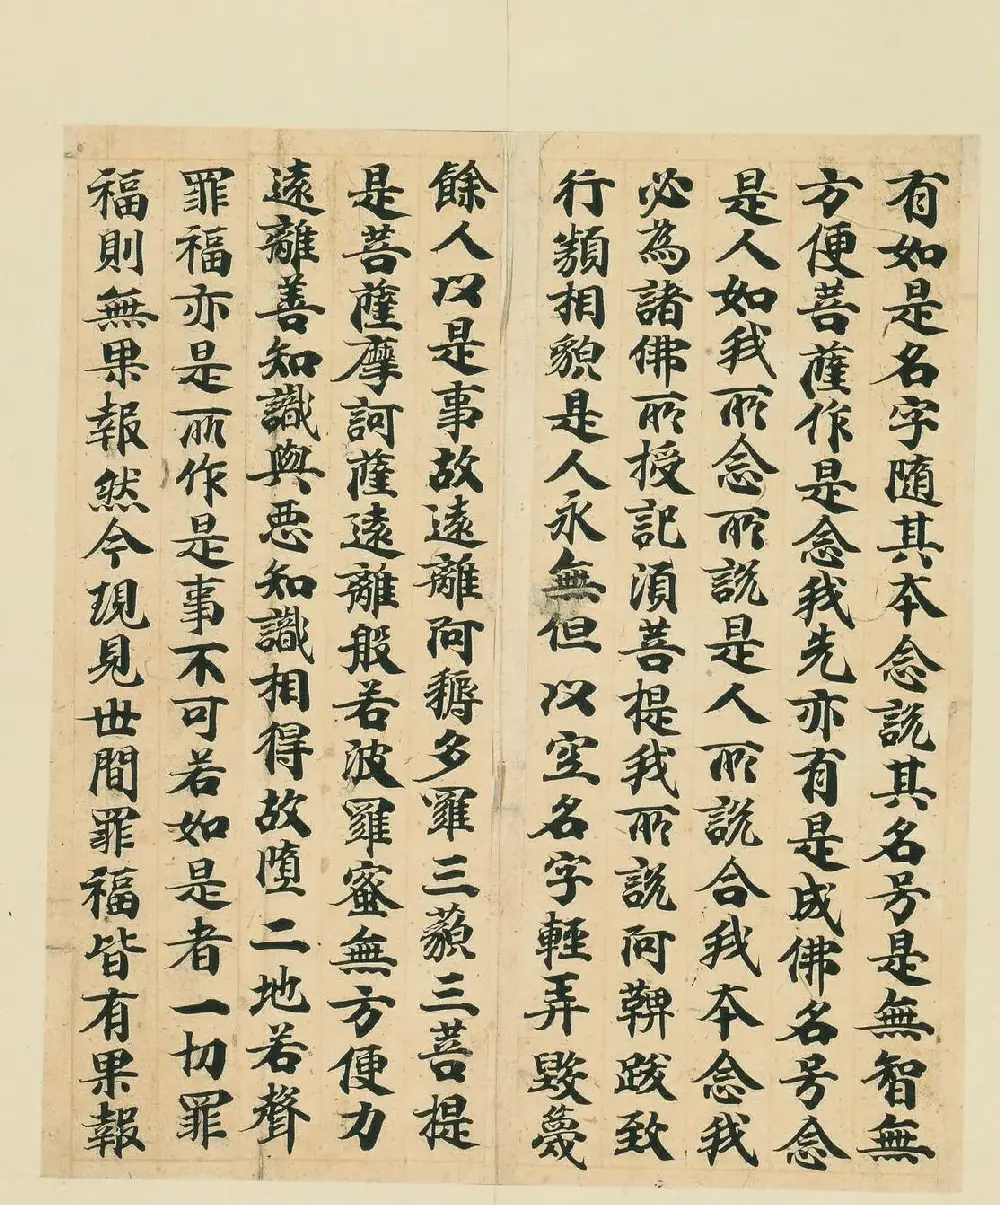 有如是名字隨其本念說其名号是無智無
方便菩薩作是念我先亦有是成佛名号念
是人如我所念所說是人所說合我本念我
必為諸佛所授記須菩提我所說阿鞞跋致
行類相貌是人永無但以空名字輕弄毀蔑
餘人以是事故遠離阿耨多羅三藐三菩提
是菩薩摩訶薩遠離般若波羅蜜無方便力
遠離善知識與惡知識相得故墮二地若聲
罪福亦是所作是事不可若如是者一切罪
福則無果報然今現見世間罪福皆有果報